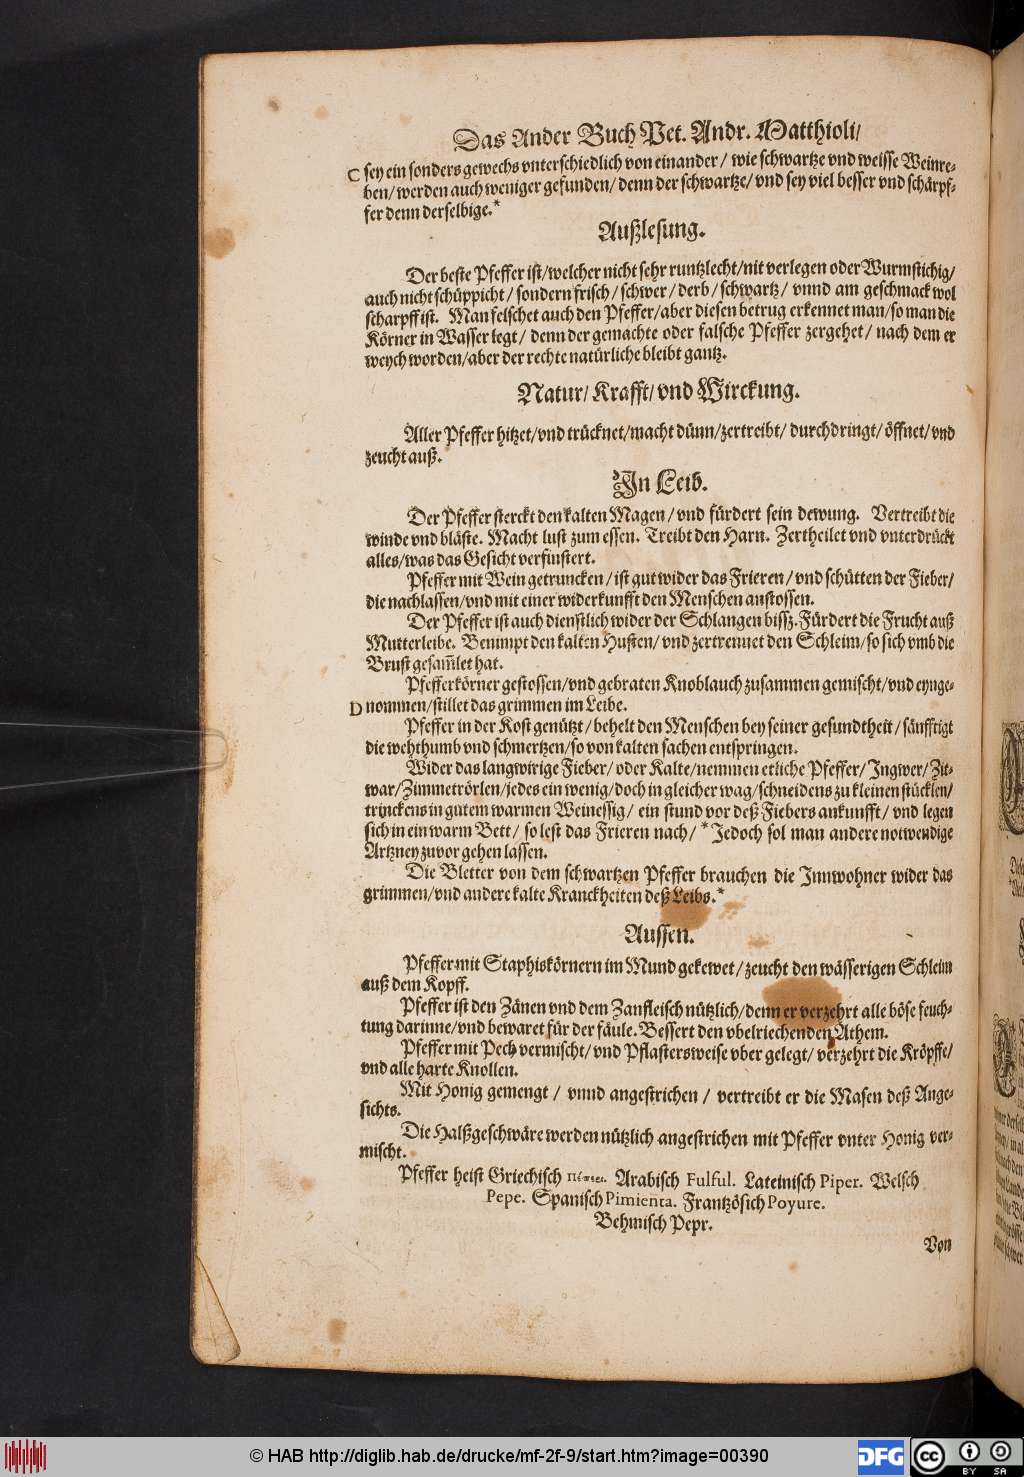 Das Ander Buch Pet. Andr. Matthioli/
C sey ein sonders gewechs vnterschiedlich von einander / wie schwartze vnd weisse Weinre-
ben/ werden auch weniger gefunden/ denn der schwartze/ vnd sey viel besser vnd schärpf-
fer denn derselbige.*
Außlesung.
Der beste Pfeffer ist/welcher nicht sehr runtzlecht/nit verlegen oder Wurmstichig/
auch nicht schüppicht / sondern frisch / schwer / derb / schwartz / vnnd am geschmack wol
scharpff ist. Man felschet auch den Pfeffer/aber diesen betrug erkennet man/so man die
Körner in Wasser legt / denn der gemachte oder falsche Pfeffer zergehet / nach dem er
weych worden/aber der rechte natürliche bleibt gantz.
Natur/ Krafft/ vnd Wirckung.
Aller Pfeffer hitzet/vnd trücknet/macht dünn/zertreibt/ durchdringt/ öffnet/ vnd
zeucht auß.
In Leib.
Der Pfeffer sterckt den kalten Magen / vnd fürdert sein dewung. Vertreibt die
winde vnd bläste. Macht lust zum essen. Treibt den Harn. Zertheilet vnd vnterdrückt
alles/was das Gesicht verfinstert.
Pfeffer mit Wein getruncken / ist gut wider das Frieren / vnd schütten der Fieber/
die nachlassen/vnd mit einer widerkunfft den Menschen anstossen.
Der Pfeffer ist auch dienstlich wider der Schlangen bissz. Fürdert die Frucht auß
Mutterleibe. Benimpt den kalten Husten/ vnd zertrennet den Schleim/so sich vmb die
Brust gesam̃let hat.
Pfefferkörner gestossen/vnd gebraten Knoblauch zusammen gemischt/vnd eynge-
D nommen/stillet das grimmen im Leibe.
Pfeffer in der Kost genützt / behelt den Menschen bey seiner gesundtheit / sänfftigt
die wehthumb vnd schmertzen/so von kalten sachen entspringen.
Wider das langwirige Fieber/ oder Kalte/nemmen etliche Pfeffer/ Ingwer/ Zit-
war/Zimmetrörlen/jedes ein wenig/doch in gleicher wag/schneidens zu kleinen stücklen/
trinckens in gutem warmen Weinessig / ein stund vor deß Fiebers ankunfft/ vnd legen
sich in ein warm Bett / so lest das Frieren nach/ * Jedoch sol man andere notwendige
Artzney zuvor gehen lassen.
Die Bletter von dem schwartzen Pfeffer brauchen die Innwohner wider das
grimmen/vnd andere kalte Kranckheiten deß Leibs.*
Aussen.
Pfeffer mit Staphiskörnern im Mund gekewet / zeucht den wässerigen Schleim
auß dem Kopff.
Pfeffer ist den Zänen vnd dem Zanfleisch nützlich/denn er verzehrt alle böse feuch-
tung darinne/vnd bewaret für der fäule. Bessert den vbelriechenden Athem.
Pfeffer mit Pech vermischt/ vnd Pflastersweise vber gelegt/ verzehrt die Kröpffe/
vnd alle harte Knollen.
Mit Honig gemengt / vnnd angestrichen / vertreibt er die Masen deß Ange-
sichts.
Die Halßgeschwäre werden nützlich angestrichen mit Pfeffer vnter Honig ver-
mischt.
Pfeffer heist Griechisch Πέπερι. Arabisch Fulful. Lateinisch Piper. Welsch
Pepe. Spanisch Pimienta. Frantzösich Poyure.
Behmisch Pepr.
Von
© HAB http://diglib.hab.de/drucke/mf-2f-9/start.htm?image=00390
DFG
cc BY SA